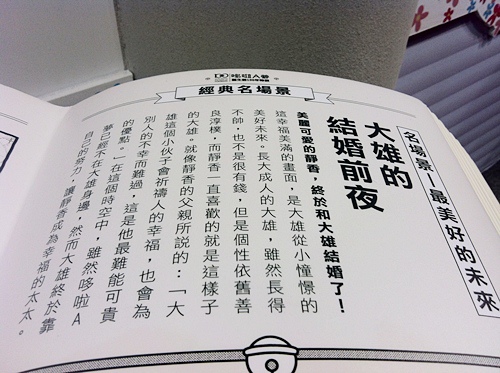 哆啦A夢
誕生前100年特展
經典名場景
名場景—最美好的未來
大雄的
結婚前夜
美麗可愛的靜香，終於和大雄結婚了！
這幸福美滿的畫面，是大雄從小憧憬的
美好未來。長大成人的大雄，雖然長得
不帥，也不是很有錢，但是個性依舊善
良淳樸，而靜香一直喜歡的就是這樣子
的大雄。就像靜香的父親所說的：「大
雄這個小伙子會祈禱人的幸福，也會為
別人的不幸而難過，這是他最難能可貴
的優點。」在這個時空中，雖然哆啦A
夢已經不在大雄身邊，然而大雄終於靠
自己的努力，讓靜香成為幸福的太太。